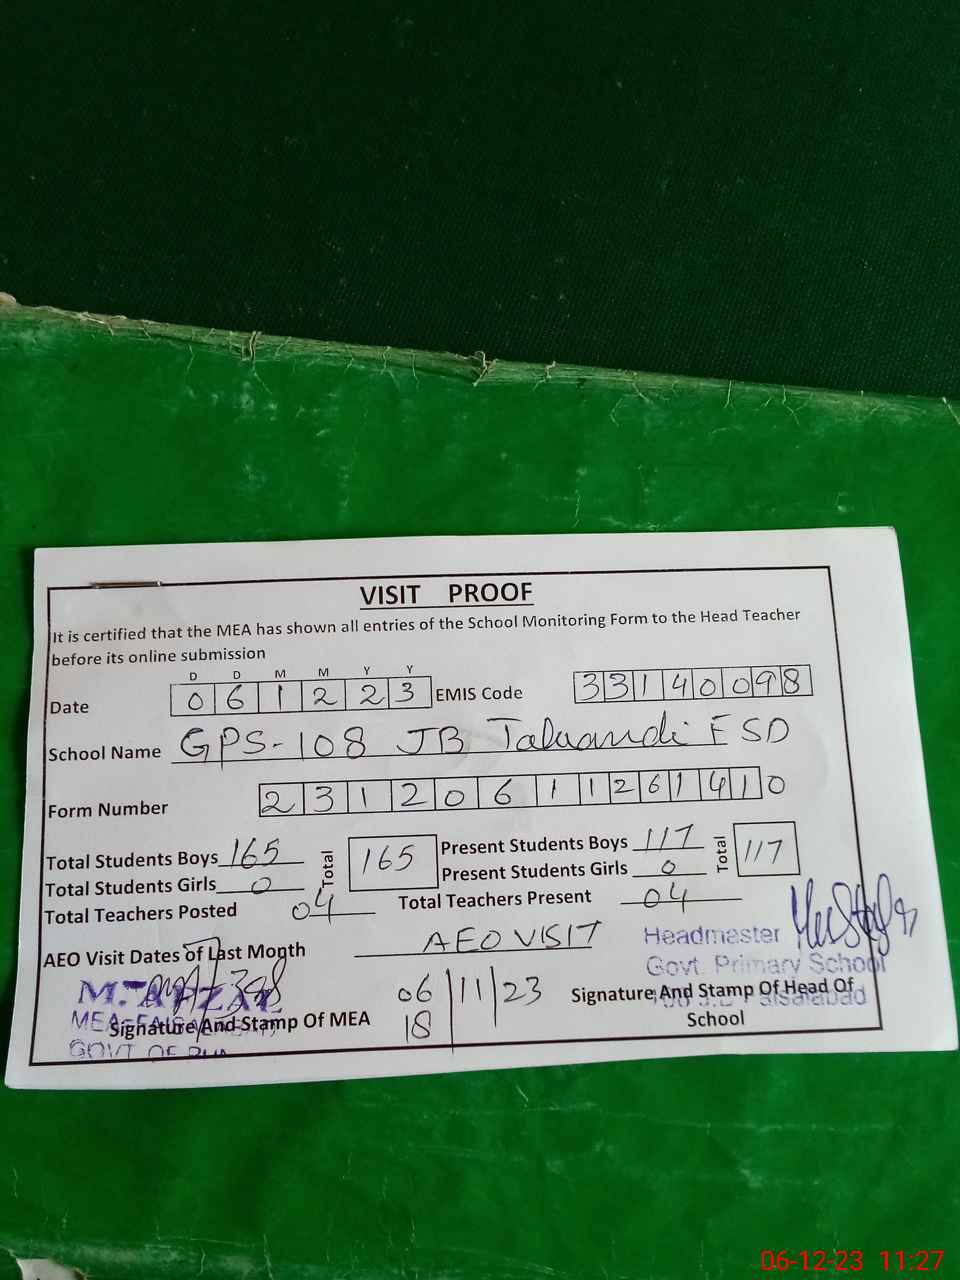 VISIT PROOF
It is certified that the MEA has shown all entries of the School Monitoring Form to the Head Teacher
before its online submission
D D M M Y Y
Date 0 6 1 2 2 3 EMIS Code 3 3 1 4 0 0 9 8
School Name GPS-108 JB Talwandi FSD
Form Number 2 3 1 2 0 6 1 1 2 6 1 4 1 0
Total Students Boys 165 Total 165 Present Students Boys 117 Total 117
Total Students Girls 0 Present Students Girls 0
Total Teachers Posted 04 Total Teachers Present 04
AEO Visit Dates of Last Month AEO VISIT
Headmaster
Govt. Primary School
M. AFZAL
06/11/23
18
MEA
Signature And Stamp Of MEA
GOVT OF
Signature And Stamp Of Head Of
School
Faisalabad
06-12-23 11:27